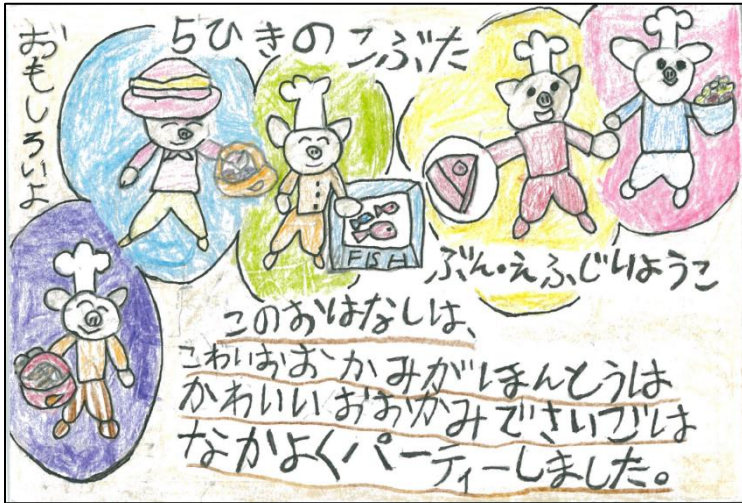 おもしろいよ
5ひきのこぶた
FISH
ぶん・え ふじいようこ
このおはなしは、
こわいおおかみがほんとうは
かわいいおおかみでさいごは
なかよくパーティーしました。